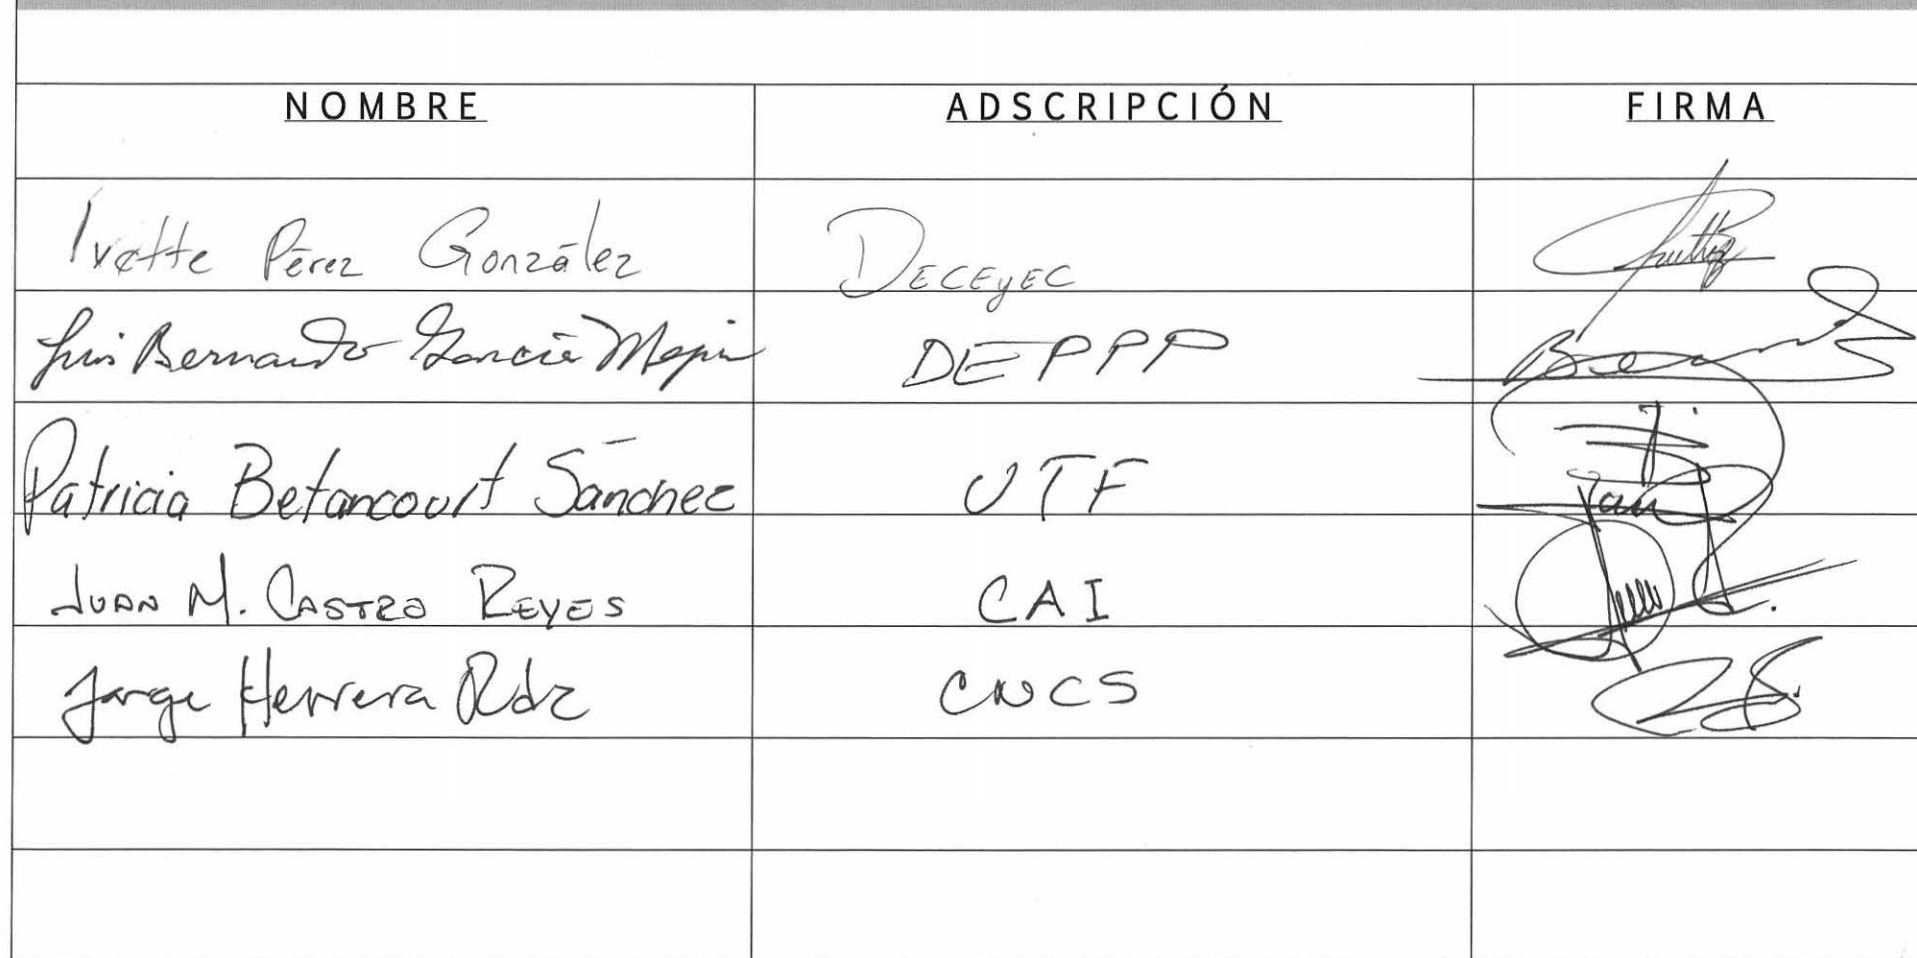 NOMBRE ADSCRIPCIÓN FIRMA
Ivette Pérez González DECEyEC
Luis Bernardo García Mejía DEPPP
Patricia Betancourt Sánchez UTF
JUAN M. CASTRO REYES CAI
Jorge Herrera Rdz CNCS